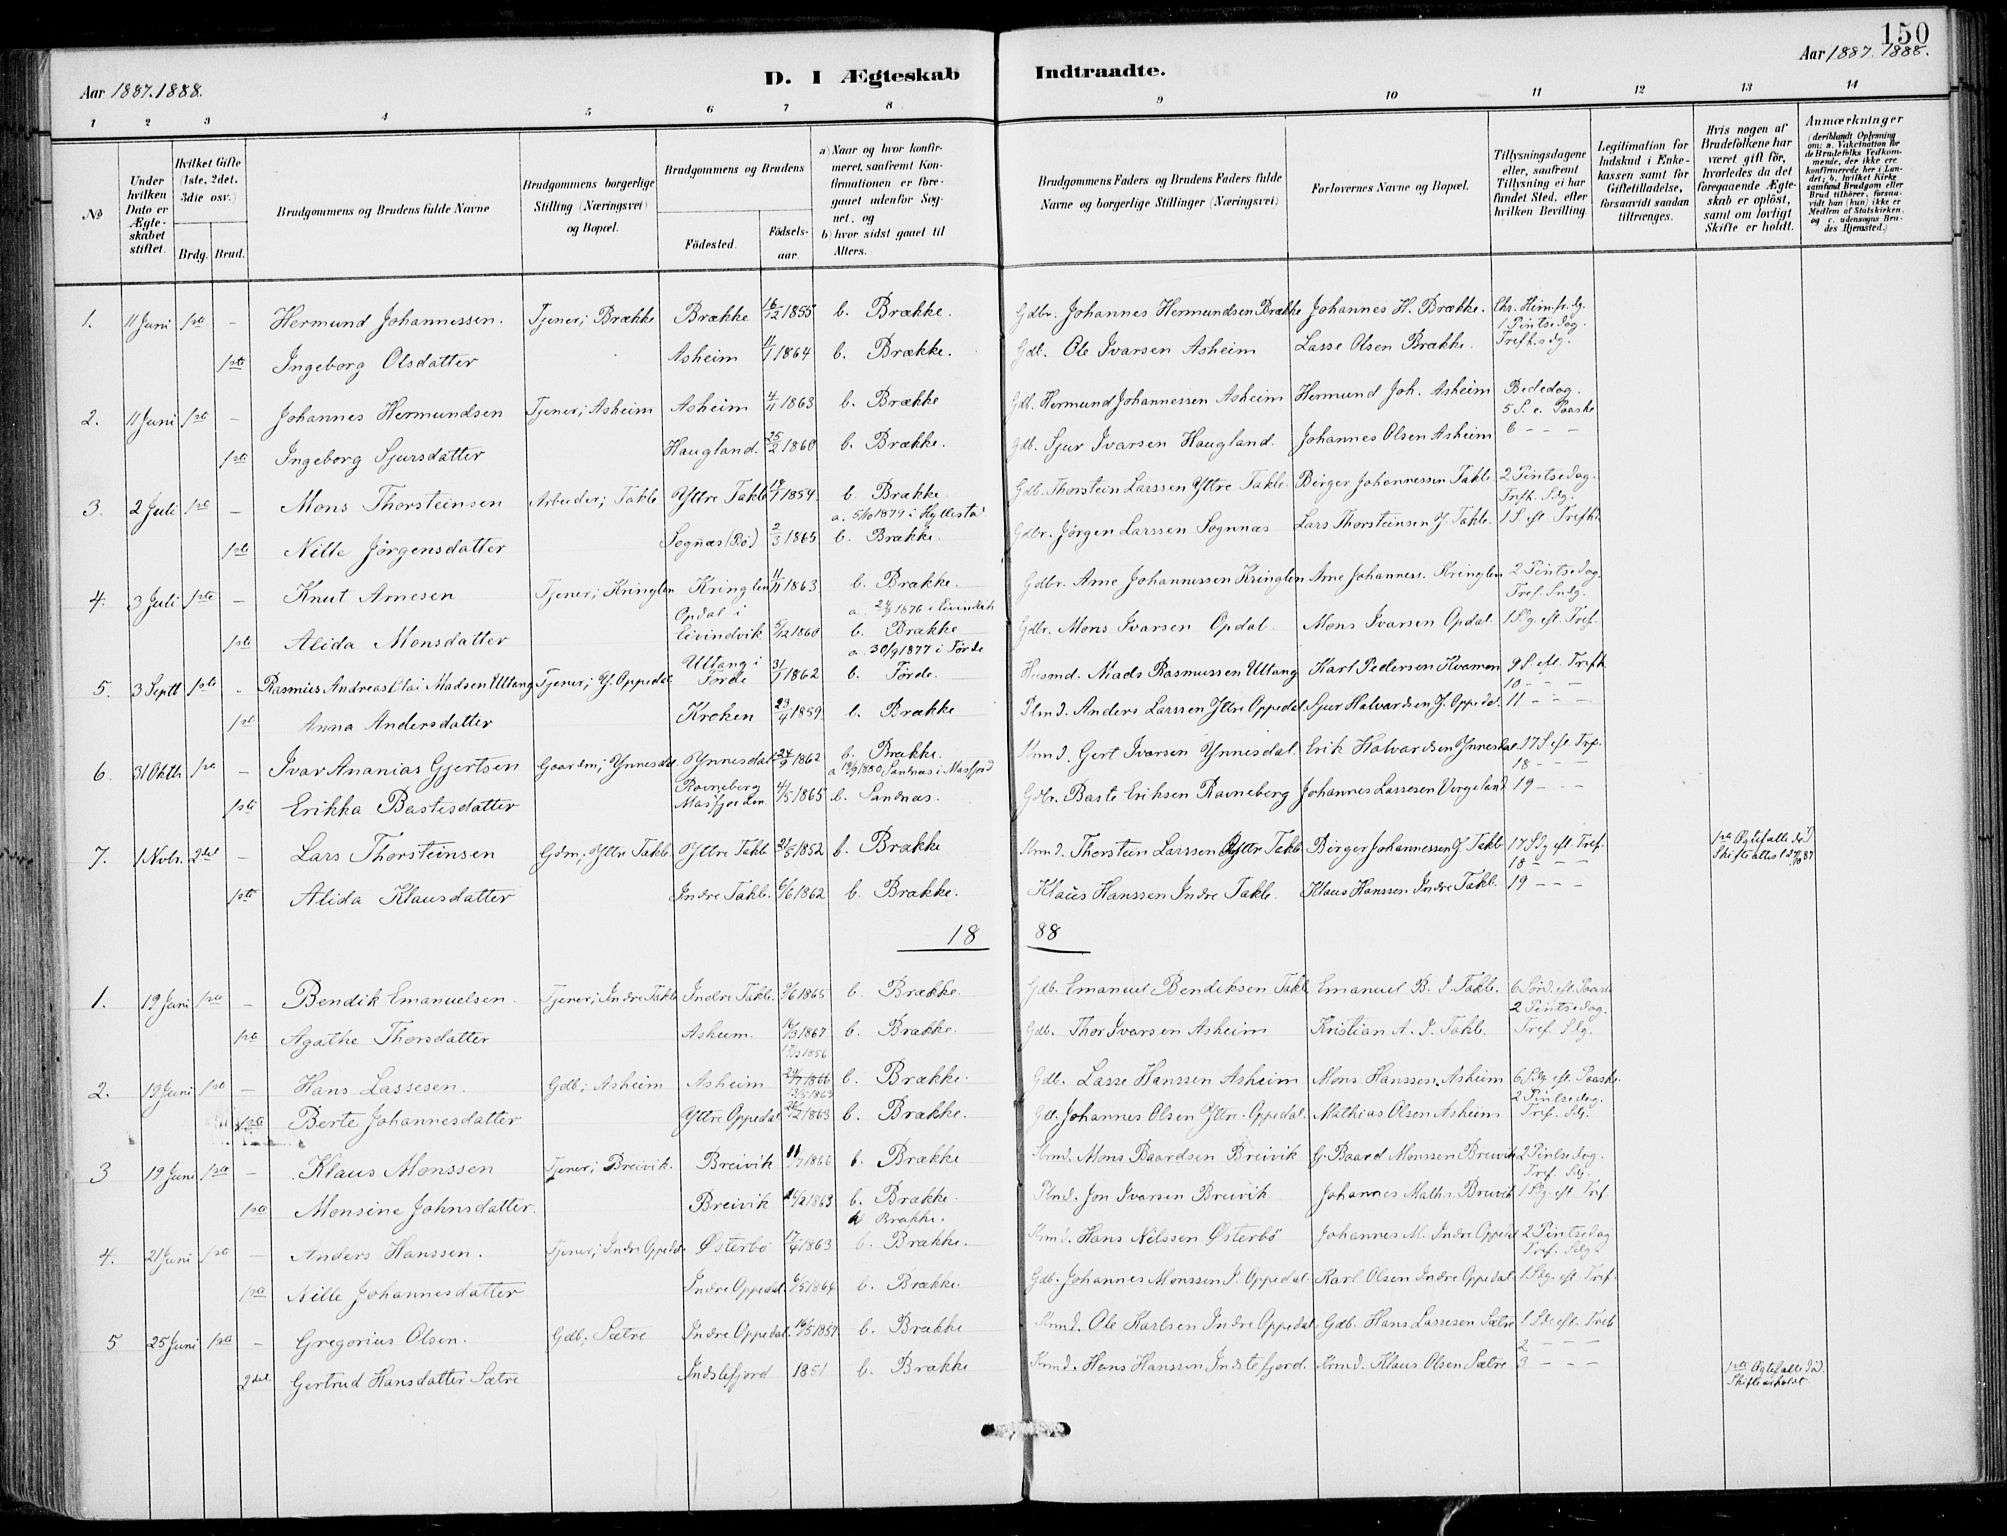 150
Aar 1887. 1888.
D. I Ægteskab Indtraadte.
Aar 1887. 1888.
1 2 3 4 5 6 7 8 9 10 11 12 13 14
№
Under hvilken Dato er Ægteskabet stiftet.
Hvilket Gifte (1ste, 2det, 3die osv.)
Brdg. Brud.
Brudgommens og Brudens fulde Navne
Brudgommens borgerlige Stilling (Næringsvei) og Bopæl.
Brudgommens og Brudens
Födested. Födselsaar.
a) Naar og hvor konfirmeret, saafremt Konfirmationen er foregaaet udenfor Sognet, og
b) hvor sidst gaaet til Alters.
Brudgommens Faders og Brudens Faders fulde Navne og borgerlige Stillinger (Næringsvei)
Forlovernes Navne og Bopæl.
Tillysningsdagene eller, saafremt Tillysning ei har fundet Sted, efter hvilken Bevilling.
Legitimation for Indskud i Enkekassen samt for Giftetilladelse, forsaavidt saadan tiltrænges.
Hvis nogen af Brudefolkene har været gift för, hvorledes da det foregaaende Ægteskab er oplöst, samt om lovligt Skifte er holdt.
Anmærkninger (deriblandt Oplysning om; a. Vakcination for de Brudefolks Vedkommende, der ikke ere konfirmerede her i Landet; b. hvilket Kirkesamfund Brudgom eller Brud tilhörer, forsaavidt han (hun) ikke er Medlem af Statskirken, og c. udensogns Brudes Hjemsted.)
1. 11 Juni 1ste - Hermund Johannessen. Tjener; Brække Brække 16/12 1855 b. Brække. Gdbr. Johannes Hermundsen Brække Johannes H. Brække. Chr. Himfr.dg. 1 Pintsedag.
1ste Ingeborg Olsdatter Asheim 1864 b. Brække. Gdb. Ole Ivarsen Asheim Lasse Olsen Brække. Trefh.sdg.
2. 11 Juni 1ste - Johannes Hermundsen Tjener; Asheim Asheim 4/11 1863 b. Brække Gdb. Hermund Johannessen Asheim Hermund Joh. Asheim Bededag. 5 S. e. Paaske
1ste Ingeborg Sjursdatter Haugland. 25/2 1860 b. Brække. Gdb. Sjur Ivarsen Haugland. Johannes Olsen Asheim 6 - - -
3. 2 Juli 1ste - Mons Thorsteinsen Arbeider; Takle Yttre Takle 1854. b. Brække. Gdb. Thorstein Larssen Yttre Takle. Birger Johannessen Takle 2 Pintsedag. Trefh. Sdg.
a. 5/10 1879 i Hyllestad
1ste Nille Jørgensdatter Sognæs (Bø) 2/3 1865 b. Brække. Gdbr. Jørgen Larssen Sognnæs Lars Thorsteinsen Y. Takle. 1 S. eft. Trefh.
4. 3 Juli 1ste - Knut Arnesen Tjener; Kringlen Kringlen 11/11 1863 b. Brække. Gdbr. Arne Johannessen Kringlen Arne Johanness. Kringlen 2 Pintsedag. Tref. Sndg.
a. 24/9 1876 i Eivindvik
1ste Alida Monsdatter Opdal i Eivindvik 5/12 1860 b. Brække Gdbr. Mons Ivarsen Opdal. Mons Ivarsen Opdal 1 Sdg. eft. Tref.
a. 30/9 1877 i Førde
5. 3 Septr 1ste - Rasmus Andreas Olai Madsen Uttang Tjener; Y. Oppedal Uttang i Førde 31/1 1862 b. Førde. Husmd. Mads Rasmussen Uttang Karl Pedersen Kvamen 9 S. eft. Trefh
10 - - -
1ste Anna Andersdatter Kroken 1859. b. Brække Plmd. Anders Larssen Yttre Oppedal. Sjur Halvardsen Y. Oppedal. 11 - - -
6. 31 Oktbr 1ste - Ivar Ananias Gjertsen Gaardm; Ynnesdal. Ynnesdal 24/9 1862 b. Brække. Krmd. Gert Ivarsen Ynnesdal. Erik Halvardsen Ynnesdal 17 S. eft. Tref.
a 19/9 1880 Sandnæs i Masfjord 18 - - -
1ste Erikka Bastesdatter Ravneberg Masfjorden. 4/5 1865 b. Sandnæs. Gdbr. Baste Eriksen Ravneberg Johannes Lassesen Vergeland 19 - - -
7. 1 Novbr. 2det - Lars Thorsteinsen Gdm; Yttre Takle Yttre Takle 21/5 1852 b. Brække Krmd. Thorstein Larssen Yttre Takle Birger Johannessen Y. Takle 17 Sdg. eft. Tref. 1ste Ægtefælle død
18 - - -
1ste Alida Klausdatter Indre Takle. 6/6 1862 b. Brække. Klaus Hanssen Indre Takle. Klaus Hanssen Indre Takle. 19 - - -
18 88
1. 19 Juni 1ste - Bendik Emanuelsen. Tjener; Indre Takle Indre Takle. 1865 b. Brække. Gdb. Emanuel Bendiksen Takle Emanuel B. I. Takle. 6 Sønd. eft. Paaske
2 Pintsedag.
1ste Agathe Thorsdatter Asheim. 1867 b. Brække. Gdb. Thor Ivarsen Asheim Kristian A. I. Takle. Tref. Sdg.
2. 19 Juni 1ste - Hans Lassesen. Gdb; Asheim Asheim 1856 1866 b. Brække. Gdb. Lasse Hanssen Asheim Mons Hanssen Asheim 6 Sdg. eft. Paaske.
2 Pintsedag.
1ste Berte Johannesdatter Yttre Oppedal 1863 1863 b. Brække. Gdb. Johannes Olsen Yttre-Oppedal. Mathias Olsen Asheim Tref. Sdg.
3 19 Juni 1ste - Klaus Monssen Tjener; Breivik. Breivik 1866 b. Brække Krmd. Mons Baardsen Breivik G. Baard Monssen Breivik 2 Pintsedag. Tref. Sdg.
1ste Monsine Johnsdatter. Breivik 1863 b. Brække. Plmd. Jon Ivarsen Breivik Johannes Maths. Breivik 1 Sdg. eft. Tref.
b Brække.
4. 21 Juni 1ste - Anders Hanssen. Tjener; Indre Oppedal Østerbö 17/4 1863 b. Brække. Krmd. Hans Nilssen Østerbö Johannes M. Indre Oppedal 2 Pintsedag Tref. Sdg.
1ste Nille Johannesdatter Indre Oppedal. 6/5 1864 b. Brække. Gdb. Johannes Monssen I. Oppedal. Karl Olsen Indre Oppedal. 1 Sdg. eft. Tref.
5 25 Juni 1ste - Gregorius Olsen. Gdb; Sætre Indre Oppedal. 16/5 1857. b. Brække Krmd. Ole Karlsen Indre Oppedal Gdb. Hans Lassesen Sætre 1 Sde eft. Treb
2 - - -
2det. Gertrud Hansdatter Sætre Indstefjord 1851 b. Brække Krmd. Hans Hanssen Indstefjord. Krmd. Klaus Olsen Sætre 3 - - - 1ste Ægtefælle død. Skifte afholdt.